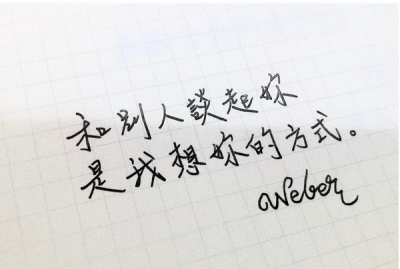 和別人談起妳
是我想妳的方式。
Weber